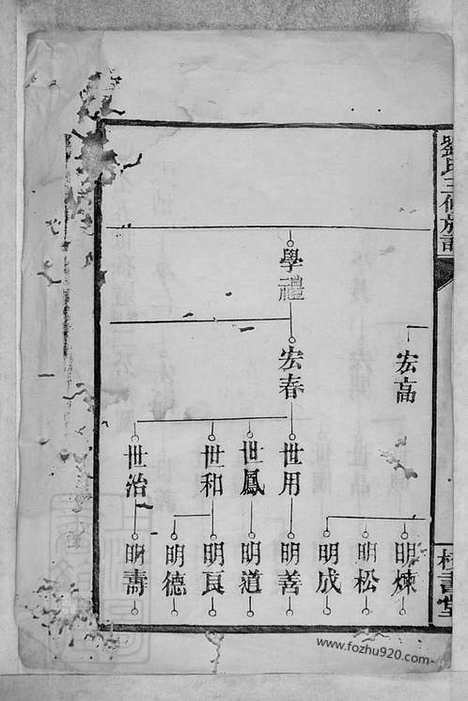 劉氏三修族譜
學禮
宏高
宏春
世用
世鳳
世和
世治
明煉
明松
明成
明善
明道
明良
明德
明壽
書堂
www.fozhu920.com